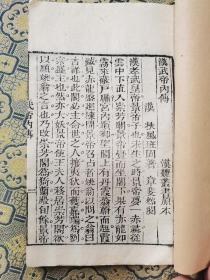 漢武帝內傳 漢魏叢書原本
漢 扶風班固著 章斐然閱
漢孝武皇帝景帝子也未生之時景帝夢一赤彘從
雲中下直入崇芳閣景帝覺而坐閣下果有赤龍如
霧來蔽戶牖宮內嬪御望閣上有丹霞蓊鬱而起霞
滅見赤龍盤迴棟間景帝召占者姚翁以問之翁曰
吉祥也此閣必生命世之人攘夷狄而獲嘉瑞為劉
宗盛主也然亦大妖景帝使王夫人移居崇芳閣欲
以順姚翁之言也乃改崇芳閣為猗蘭殿旬餘景帝
武帝內傳